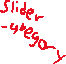 slider
-category